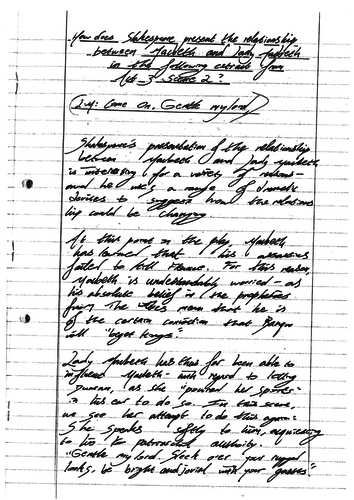 How does Shakespeare present the relationship
between Macbeth and Lady Macbeth
in the following extract from
Act 3 Scene 2?
(LM: Come on, Gentle my lord)
Shakespeare's presentation of the relationship
between Macbeth and Lady Macbeth
is interesting for a variety of reasons -
and he uses a range of dramatic
devices to suggest how the relations
hip could be changing.
At this point in the play, Macbeth
has learned that his assassins
failed to kill Fleance. For this reason,
Macbeth is understandably worried - as
his absolute belief in the prophecies
from the mean that he is
of the certain conviction that Banquo
will "beget kings".
Lady Macbeth has thus far been able to
influence Macbeth with regard to killing
Duncan, as she "poured her spirits"
in his ear to do so. In this scene,
we see her attempt to do this again:
She speaks softly to him,
to his patriarchal authority.
"Gentle my lord. Sleek o'er your rugged
looks, be bright and jovial with your guests."